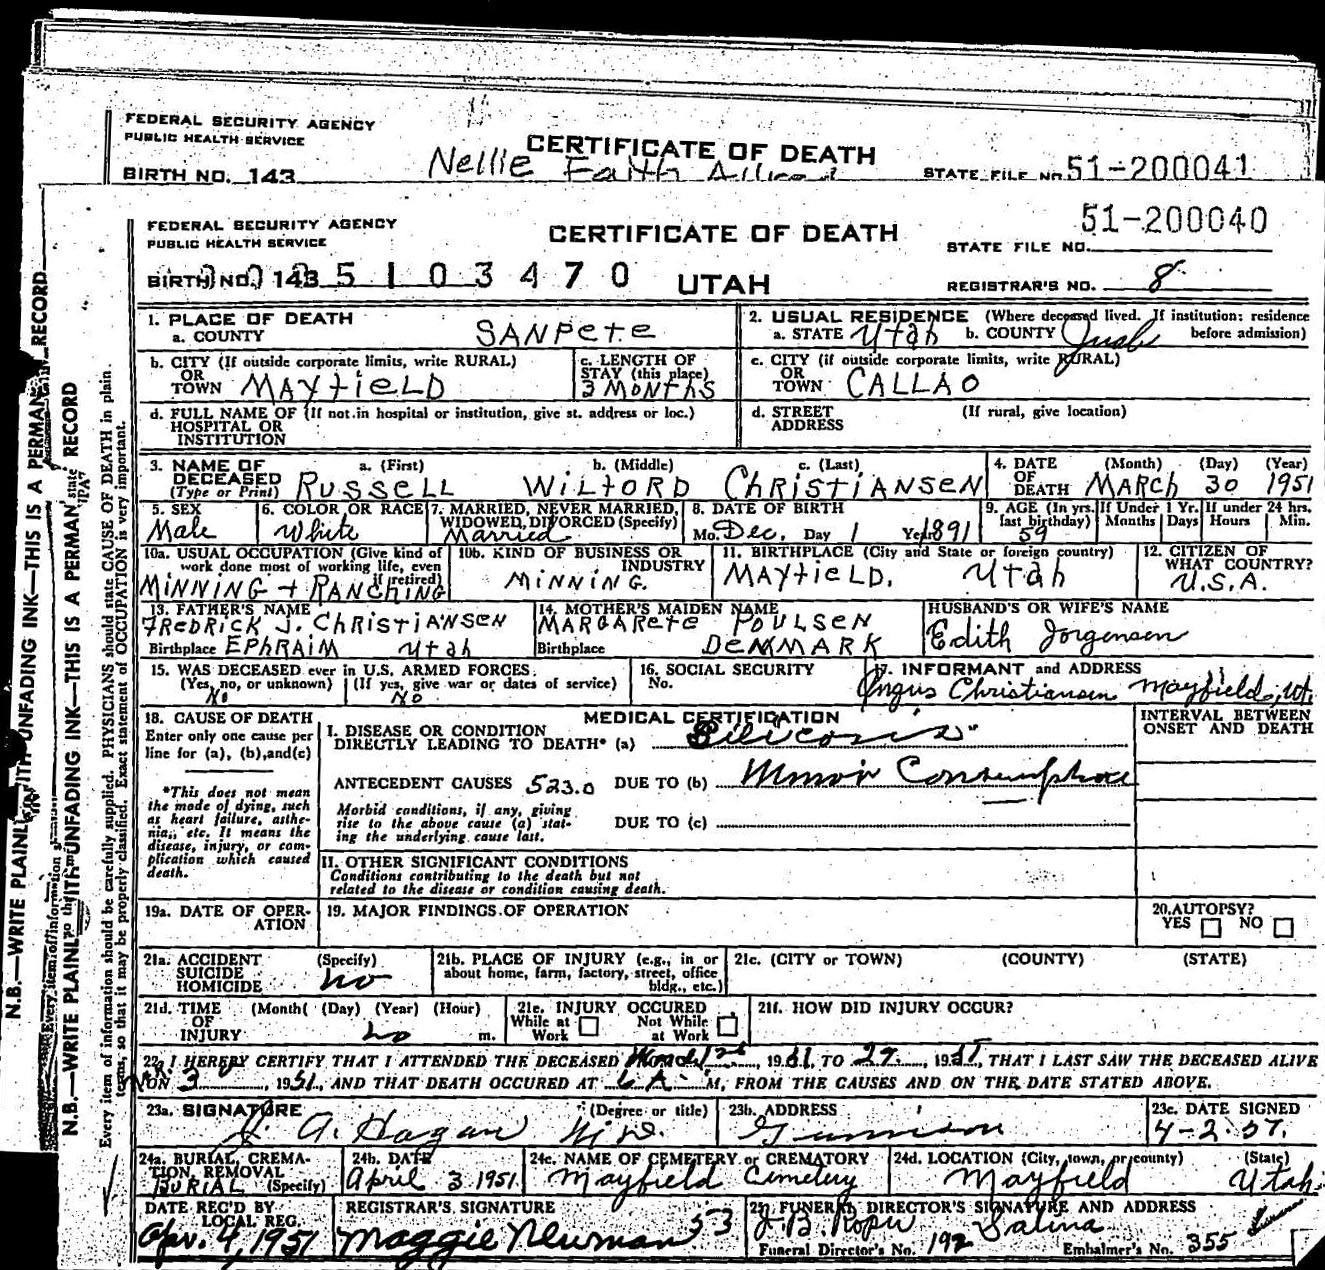 FEDERAL SECURITY AGENCY
PUBLIC HEALTH SERVICE
CERTIFICATE OF DEATH
BIRTH NO. 143
Nellie Faith
STATE FILE NO. 51-200041
FEDERAL SECURITY AGENCY
PUBLIC HEALTH SERVICE
CERTIFICATE OF DEATH
51-200040
STATE FILE NO.
BIRTH NO. 143 5103470
UTAH
REGISTRAR'S NO. 8
1. PLACE OF DEATH
a. COUNTY SANPETE
2. USUAL RESIDENCE (Where deceased lived. If institution: residence before admission)
a. STATE Utah b. COUNTY Juab
b. CITY (If outside corporate limits, write RURAL)
OR
TOWN MAYfiELD
c. LENGTH OF
STAY (this place)
3 MONTHS
c. CITY (if outside corporate limits, write RURAL)
OR
TOWN CALLAO
d. FULL NAME OF (If not in hospital or institution, give st. address or loc.)
HOSPITAL OR
INSTITUTION
d. STREET (If rural, give location)
ADDRESS
3. NAME OF
DECEASED
(Type or Print)
a. (First) b. (Middle) c. (Last)
RUSSELL WILFORD CHRISTIANSEN
4. DATE (Month) (Day) (Year)
OF
DEATH MARCH 30 1951
5. SEX
Male
6. COLOR OR RACE
White
7. MARRIED, NEVER MARRIED,
WIDOWED, DIVORCED (Specify)
Married
8. DATE OF BIRTH
Mo. Dec. Day 1 Yr. 1891
9. AGE (In yrs. last birthday) 59
If Under 1 Yr. Months Days
If under 24 hrs. Hours Min.
10a. USUAL OCCUPATION (Give kind of
work done most of working life, even
if retired)
MINNING + RANCHING
10b. KIND OF BUSINESS OR
INDUSTRY
MINNING.
11. BIRTHPLACE (City and State or foreign country)
MAYfiELD. Utah
12. CITIZEN OF
WHAT COUNTRY?
U.S.A.
13. FATHER'S NAME
FREDRICK J. CHRISTIANSEN
Birthplace EPHRAIM Utah
14. MOTHER'S MAIDEN NAME
MARGARETE POULSEN
Birthplace DENMARK
HUSBAND'S OR WIFE'S NAME
Edith Jorgensen
15. WAS DECEASED ever in U.S. ARMED FORCES.
(Yes, no, or unknown) (If yes, give war or dates of service)
No No
16. SOCIAL SECURITY
No.
17. INFORMANT and ADDRESS
Angus Christiansen Mayfield, Ut.
18. CAUSE OF DEATH
Enter only one cause per
line for (a), (b), and (c)
*This does not mean
the mode of dying, such
as heart failure, asthe-
nia, etc. It means the
disease, injury, or com-
plication which caused
death.
MEDICAL CERTIFICATION
INTERVAL BETWEEN
ONSET AND DEATH
I. DISEASE OR CONDITION
DIRECTLY LEADING TO DEATH* (a) Silicosis
ANTECEDENT CAUSES 523.0 DUE TO (b) Consumption
Morbid conditions, if any, giving
rise to the above cause (a) stat-
ing the underlying cause last.
DUE TO (c)
II. OTHER SIGNIFICANT CONDITIONS
Conditions contributing to the death but not
related to the disease or condition causing death.
19a. DATE OF OPER-
ATION
19. MAJOR FINDINGS OF OPERATION
20. AUTOPSY?
YES NO
21a. ACCIDENT (Specify)
SUICIDE
HOMICIDE no
21b. PLACE OF INJURY (e.g., in or
about home, farm, factory, street, office
bldg., etc.)
21c. (CITY or TOWN) (COUNTY) (STATE)
21d. TIME (Month) (Day) (Year) (Hour)
OF
INJURY no m.
21e. INJURY OCCURED
While at Work Not While at Work
21f. HOW DID INJURY OCCUR?
22. I HEREBY CERTIFY THAT I ATTENDED THE DECEASED 1951 TO 1951, THAT I LAST SAW THE DECEASED ALIVE
ON 3, 1951, AND THAT DEATH OCCURED AT 6 A. M, FROM THE CAUSES AND ON THE DATE STATED ABOVE.
23a. SIGNATURE (Degree or title)
Hagan
23b. ADDRESS
Gunnison
23c. DATE SIGNED
4-2-51.
24a. BURIAL, CREMA-
TION, REMOVAL
BURIAL (Specify)
24b. DATE
April 3 1951
24c. NAME OF CEMETERY or CREMATORY
Mayfield Cemetery
24d. LOCATION (City, town, or county) (State)
Mayfield Utah
DATE REC'D BY
LOCAL REG.
Apr. 4, 1951
REGISTRAR'S SIGNATURE
Maggie Newman 53
25. FUNERAL DIRECTOR'S SIGNATURE AND ADDRESS
Salina
Funeral Director's No. 192 Embalmer's No. 355
N.B.—WRITE PLAINLY WITH UNFADING INK—THIS IS A PERMANENT RECORD
Every item of information should be carefully supplied. PHYSICIANS should state CAUSE OF DEATH in plain
terms, so that it may be properly classified. Exact statement of OCCUPATION is very important.